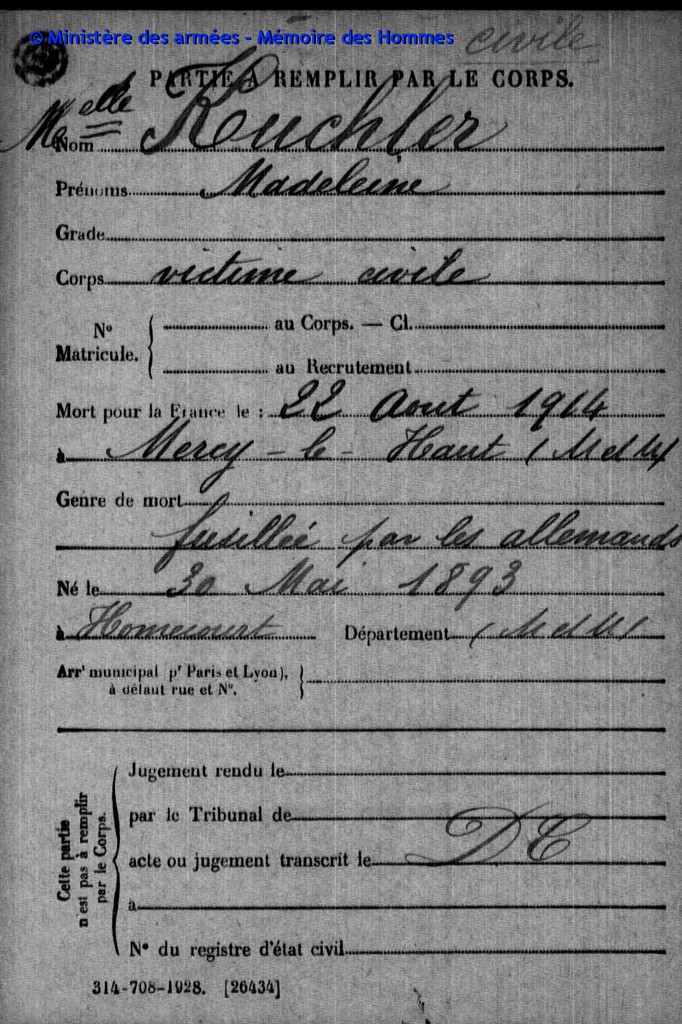 © Ministère des armées - Mémoire des Hommes
civile
PARTIE A REMPLIR PAR LE CORPS.
Melle
Nom Küchler
Prénoms Madeleine
Grade
Corps victime civile
N° Matricule.
au Corps. — Cl.
au Recrutement
Mort pour la France le : 22 Aout 1914
à Mercy-le-Haut (M et M)
Genre de mort
fusillée par les allemands
Né le 30 Mai 1893
à Homécourt Département (M et M)
Arrt municipal (pr Paris et Lyon),
à défaut rue et N°.
Cette partie
n'est pas à remplir
par le Corps.
Jugement rendu le
par le Tribunal de
acte ou jugement transcrit le DC
à
N° du registre d'état civil
314-708-1928. [26434]